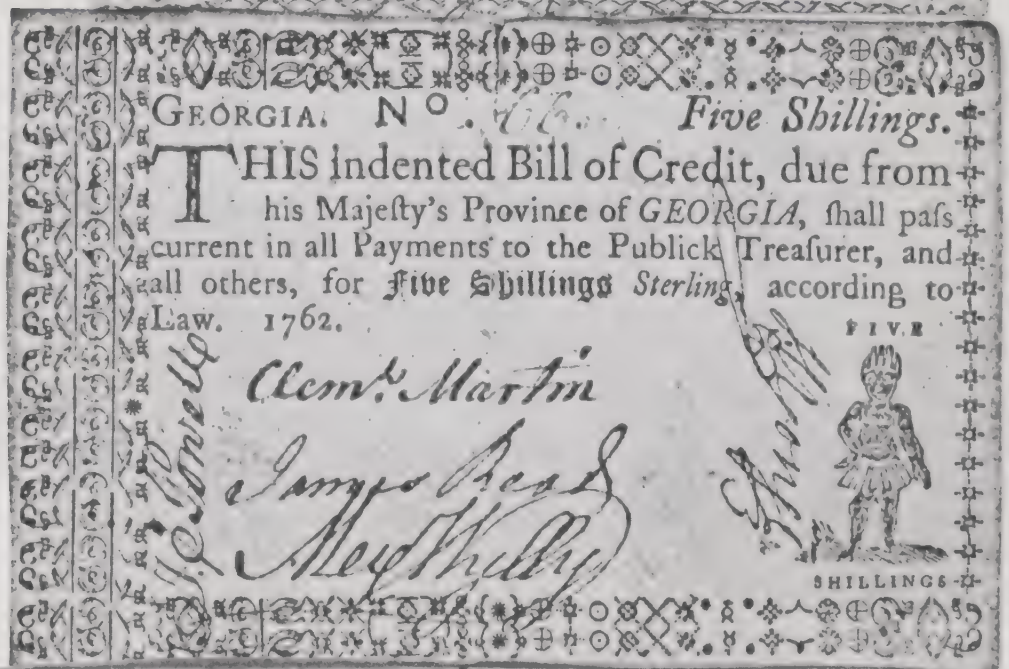 GEORGIA. No. Five Shillings.
THIS indented Bill of Credit, due from
his Majeſty's Province of GEORGIA, ſhall paſs
current in all Payments to the Publick Treaſurer, and
all others, for Five Shillings Sterling, according to
Law. 1762.
FIVE
Clemt. Martin
James Read
Alex Wylly
SHILLINGS